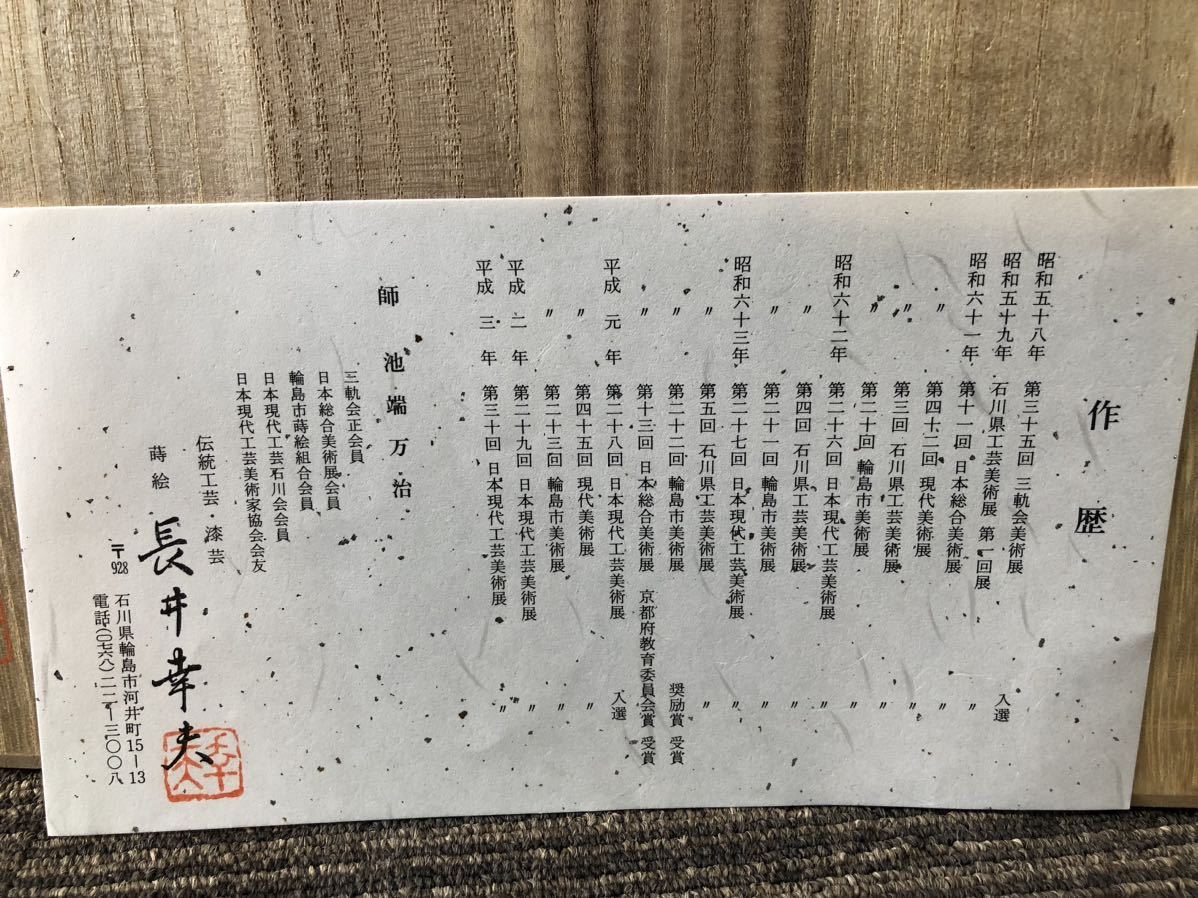 作歴
昭和五十八年 第三十五回 三軌会美術展 入選
昭和五十九年 石川県工芸美術展 第一回展 〃
昭和六十一年 第十一回 日本総合美術展 〃
〃 第四十二回 現代美術展 〃
〃 第三回 石川県工芸美術展 〃
〃 第二十回 輪島市美術展 〃
昭和六十二年 第二十六回 日本現代工芸美術展 〃
〃 第四回 石川県工芸美術展 〃
〃 第二十一回 輪島市美術展 〃
昭和六十三年 第二十七回 日本現代工芸美術展 〃
〃 第五回 石川県工芸美術展 〃
〃 第二十二回 輪島市美術展 奨励賞 受賞
〃 第十三回 日本総合美術展 京都府教育委員会賞 受賞
平成元年 第二十八回 日本現代工芸美術展 入選
〃 第四十五回 現代美術展 〃
〃 第二十三回 輪島市美術展 〃
平成二年 第二十九回 日本現代工芸美術展 〃
平成三年 第三十回 日本現代工芸美術展 〃
師 池端万治
三軌会正会員
日本総合美術展会員
輪島市蒔絵組合会員
日本現代工芸石川会会員
日本現代工芸美術家協会会友
伝統工芸・漆芸
蒔絵 長井幸夫
〒928 石川県輪島市河井町15―13
電話(〇七六八)二二―三〇〇八